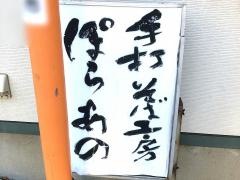 手打そば工房
ぱらあの